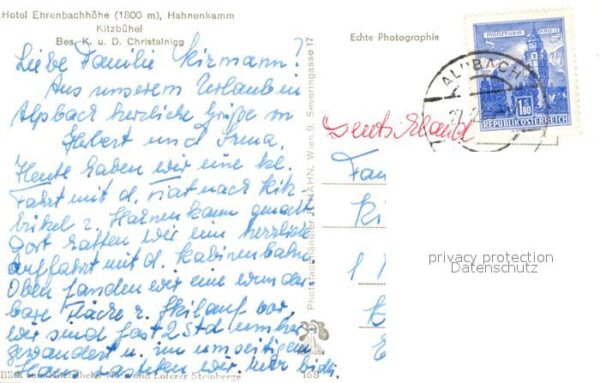 Hotel Ehrenbachhöhe (1800 m), Hahnenkamm
Kitzbühel
Bes. K. u. D. Christalnigg
Liebe Familie
Aus unserem Urlaub in
Alpbach herzliche Grüße von
Hubert und Irma.
Heute haben wir eine kl.
Fahrt mit d. Fiat nach Kitz-
bühel z. Hahnenkamm gemacht
Dort hatten wir eine herrliche
Auffahrt mit d. Kabinenbahn
Oben fanden wir eine wunder
bare Fläche z. Skilauf vor,
wir sind fast 2 Std umher
gewandert u. im umseitigen
Haus rasteten wir hier
und Loferer Steinberge
188
Wien 9, Severingasse 17
Echte Photographie
REPUBLIK ÖSTERREICH
1.80
ALPBACH
Deutschland
Fam
Ki
privacy protection
Datenschutz